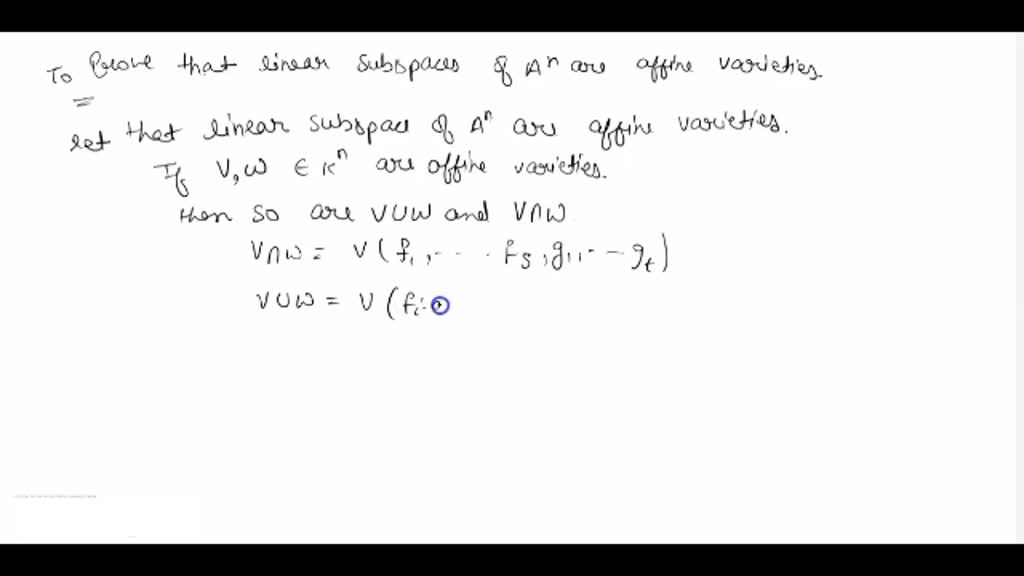 To Prove that linear subspaces of Aⁿ are affine varieties.
let that linear subspace of Aⁿ are affine varieties.
If V, W ∈ Kⁿ are affine varieties.
then so are V∪W and V∩W
V∩W = V(f₁, ... fs, g₁, -- gt)
V∪W = V(fi